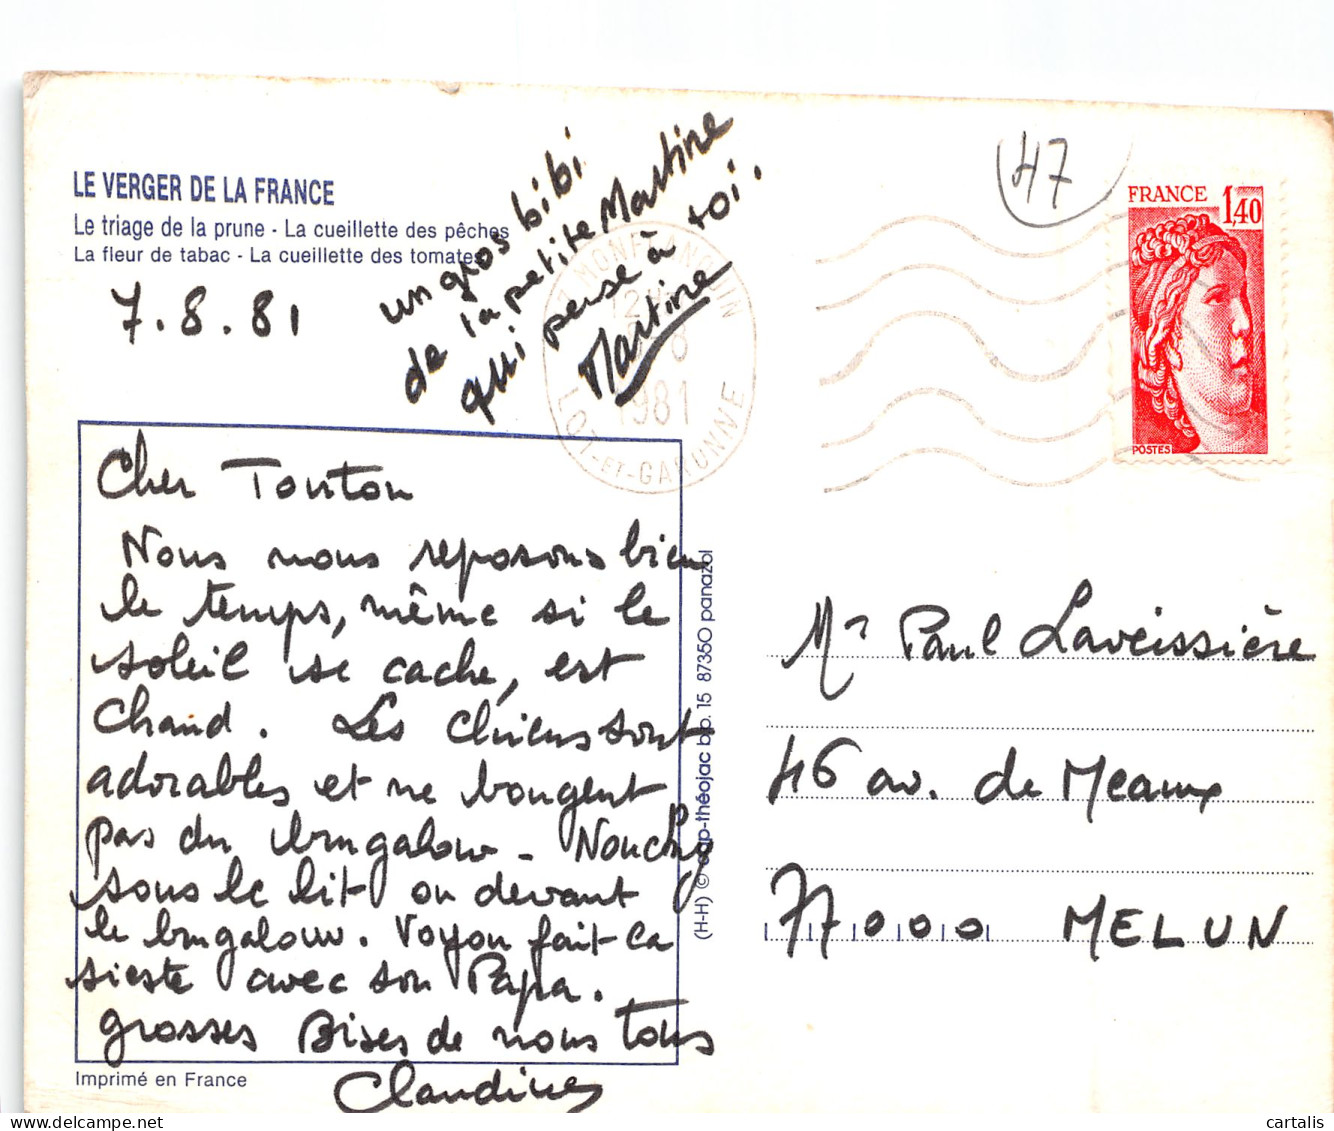 LE VERGER DE LA FRANCE
Le triage de la prune - La cueillette des pêches
La fleur de tabac - La cueillette des tomates
7.8.81
un gros bibi
de la petite Martine
qui pense à toi.
Martine
MONFLANQUIN
12H
8
1981
LOT-ET-GARONNE
47
FRANCE 1,40
POSTES
Cher Tonton
Nous nous reposons bien
le temps, même si le
soleil se cache, est
chaud. Les chiens sont
adorables et ne bougent
pas du bungalow - Nouchy
sous le lit ou devant
le bungalow. Voyou fait ca
sieste avec son Papa.
grosses Bises de nous tous
Claudine
Imprimé en France
(H-H) © cap-théojac b.p. 15 87350 panazol
Mr Paul Laveissière
46 av. de Meaux
77000 MELUN
cartalis